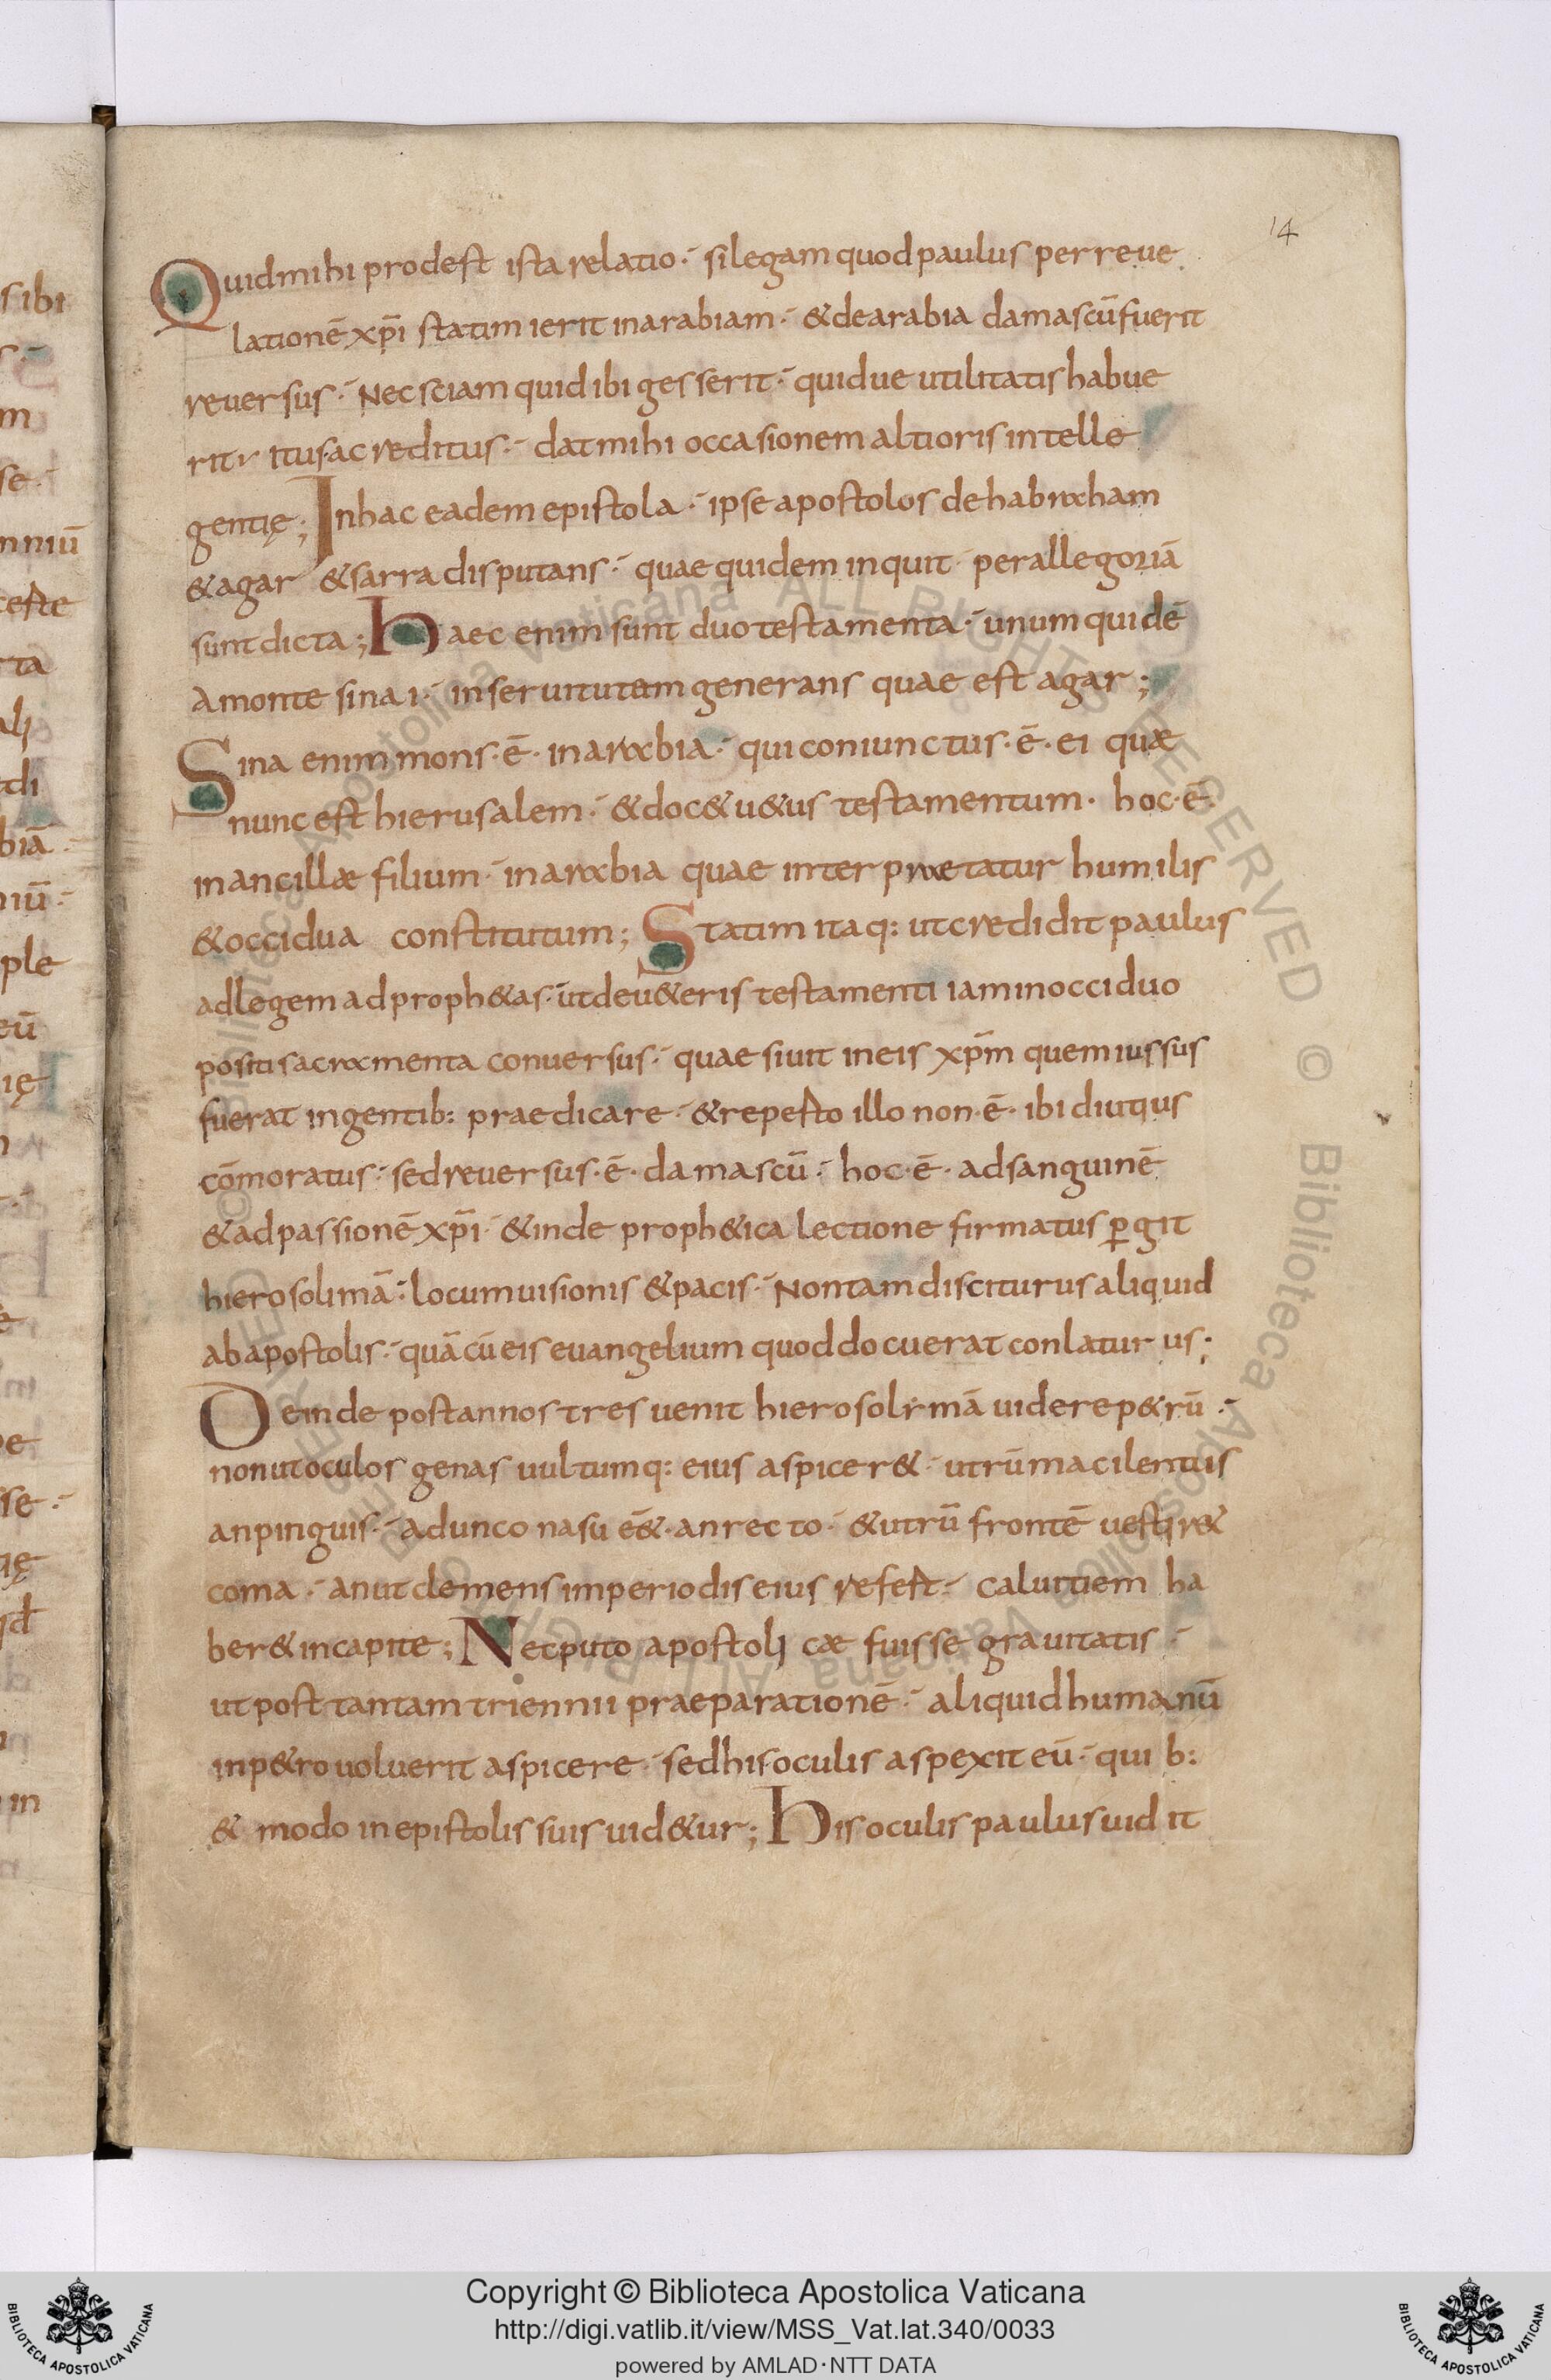 14
Quid mihi prodest ista relatio· si legam quod paulus per reue
lationē xp̄i statim ierit in arabiam· & de arabia damascū fuerit
reuersus· Nec sciam quid ibi gesserit· quidue utilitatis habue
rit itus ac reditus· dat mihi occasionem altioris intelle
gentię; In hac eadem epistola· ipse apostolos de habraham
& agar & sarra disputans· quae quidem inquit· per allegoriā
sunt dicta; Haec enim sunt duo testamenta· unum quidē
a monte sinai· in seruitutem generans quae est agar;
Sina enim mons·ē· in arabia· qui coniunctus·ē·ei quæ
nunc est hierusalem· & doc& u&us testamentum· hoc·ē·
in ancillæ filium· in arabia quae interpraetatur humilis
& occidua constitutum; Statim itaq: ut credidit paulus
ad legem ad proph&as· ut de u&eris testamenti iam in occiduo
positi sacramenta conuersus· quae siuit in eis xp̄m quem iussus
fuerat in gentib: praedicare· & reperto illo non·ē·ibi diutius
cōmoratus· sed reuersus·ē·damascū· hoc·ē·ad sanguinē
& ad passionē xp̄i· & inde proph&ica lectione firmatus ꝑgit
hierosolimā· locum uisionis & pacis· Non tam disciturus aliquid
ab apostolis· quā cū eis euangelium quod docuerat conlaturus·
Deinde post annos tres uenit hierosolymā uidere p&rū·
non ut oculos genas uultumq: eius aspicer&· utrū macilentus
an pinguis· adunco nasu ēē&·an recto· & utrū frontē uestir&
coma· an ut clemens in periodis eius refert· caluitiem ha
ber& in capite; Nec puto apostolicæ fuisse grauitatis·
ut post tantam triennii praeparationē· aliquid humanū
in p&ro uoluerit aspicere· sed his oculis aspexit eū· quib:
& modo in epistolis suis uid&ur; His oculis paulus uidit
Copyright © Biblioteca Apostolica Vaticana
http://digi.vatlib.it/view/MSS_Vat.lat.340/0033
powered by AMLAD·NTT DATA
BIBLIOTECA APOSTOLICA VATICANA
BIBLIOTECA APOSTOLICA VATICANA